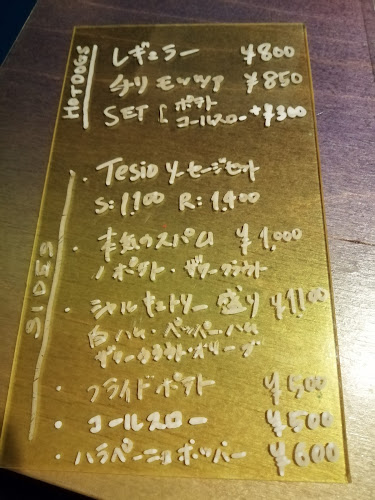 HOTDOGS
レギュラー ¥800
チリモッツァ ¥850
SET ポテト
コールスロー +¥300
SIDES
・Tesio ソーセージセット
S: 1,100 R: 1,400
・本気のスパム ¥1,000
/ポテト・ザワークラウト
・シャルキュトリー盛り ¥1,100
白ハム・ペッパーハム
ザワークラウト・オリーブ
・フライドポテト ¥500
・コールスロー ¥500
・ハラペーニョポッパー ¥600